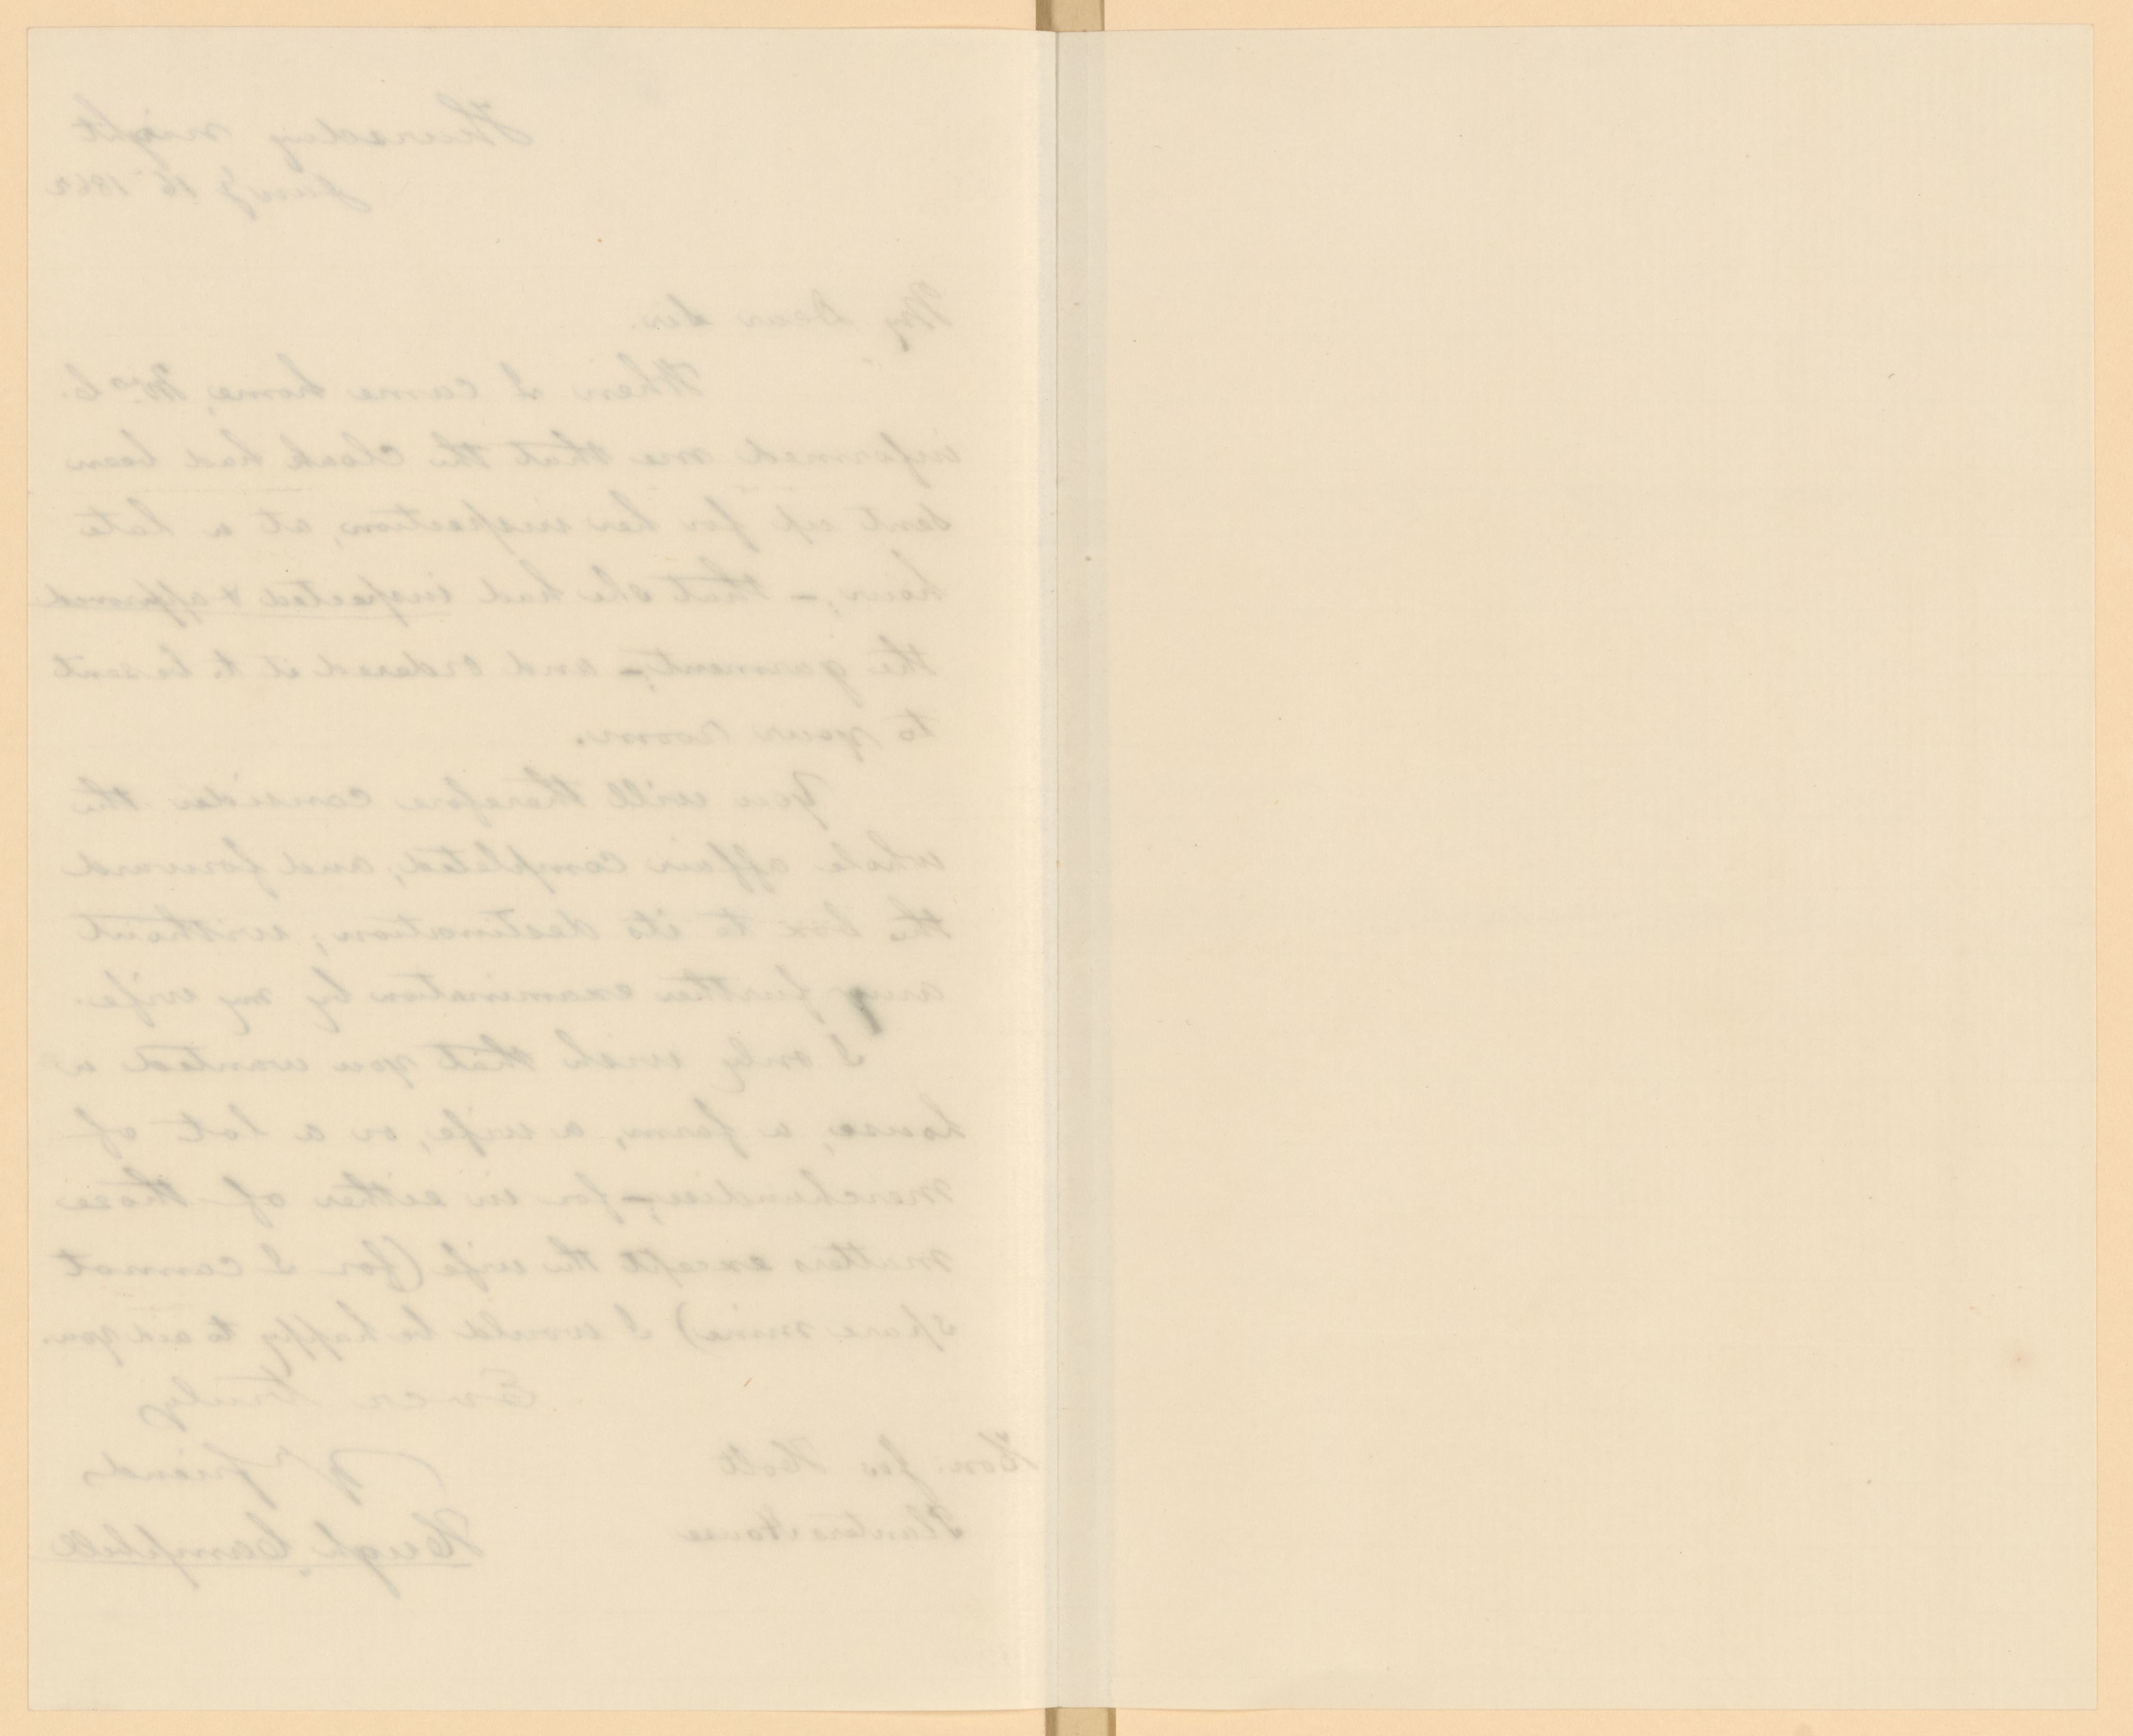 Thursday night
Jany 16 1862
My Dear Sir.
When I came home, Mrs C.
informed me that the Cloak had been
sent up for her inspection, at a late
hour; – that she had inspected & approved
the garment, – and ordered it to be sent
to your room.
You will therefore consider the
whole affair completed, and forward
the box to its destination; without
any further examination by my wife.
I only wish that you wanted a
house, a farm, a wife, or a lot of
merchandise, – for in either of those
matters except the wife (for I cannot
spare mine) I would be happy to aid you.
Ever truly
Yr friend
Hon. Jos Holt
Hugh Campbell
Planters House